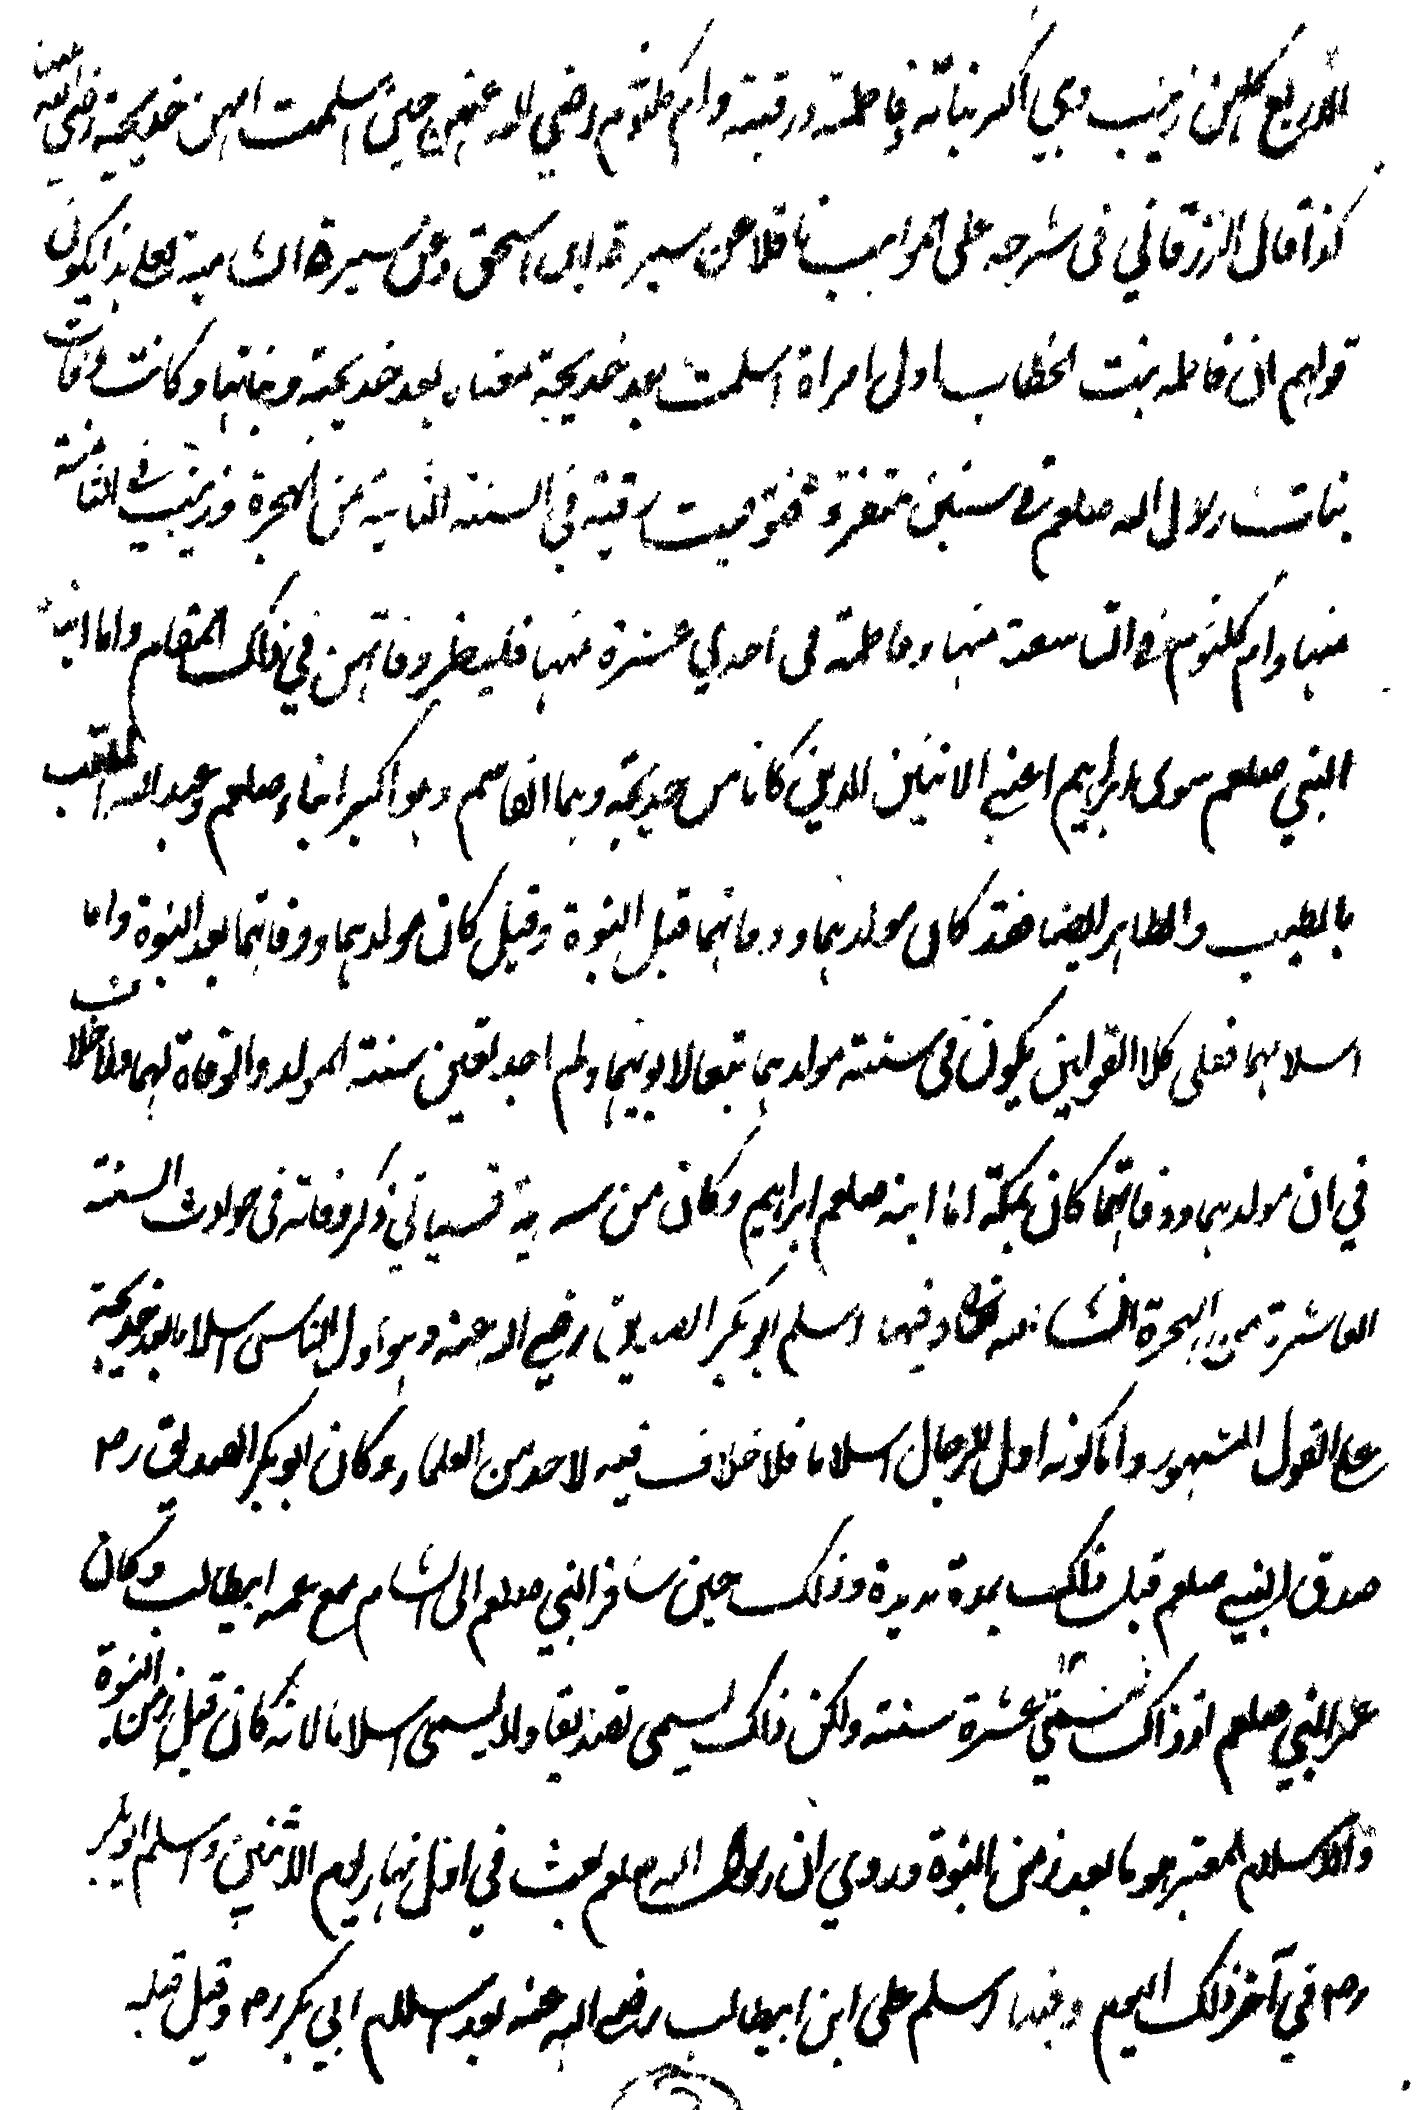 الاربع كلهن زينب وهي اكبر بناته وفاطمة ورقية وام كلثوم رضي الله عنهن حين اسلمت امهن خديجة رضي الله عنها
كذا قال الزرقاني في شرحه على المواهب ناقلا عن سيرة ابن اسحق وعن سيرة الشامية فعلى هذا يكون
قولهم ان فاطمه بنت الخطاب اول امراة اسلمت بعد خديجة معناه بعد خديجة وبناتها وكانت وفات
بنات رسول الله صلعم في سنين متفرقة فتوفيت رقية في السنة الثانية من الهجرة وزينب في الثامنة
منها وام كلثوم في التاسعة منها وفاطمة في احدي عشرة منها فلينظر وفاتهن في ذلك المقام واما ابنا
النبي صلعم سوى ابراهيم اعني الاثنين الذين كانا من خديجة وهما القاسم وهو اكبر ابناءه صلعم وعبد الله الملقب
بالطيب والطاهر ايضا فقد كان مولدهما ووفاتهما قبل النبوة وقيل كان مولدهما ووفاتهما بعد النبوة واما
اسلامهما فعلى كلا القولين يكون في سنة مولدهما تبعا لابويهما ولم اجد تعين سنة المولد والوفاة لهما ولا خلاف
في ان مولدهما ووفاتهما كان بمكة اما ابنه صلعم ابراهيم وكان من سرية فسياتي ذكر وفاته في حوادث السنة
العاشرة من الهجرة ان شاء الله تعالى وفيها اسلم ابو بكر الصديق رضي الله عنه وهو اول الناس اسلاما بعد خديجة
على القول المشهور واما كونه اول الرجال اسلاما فلا خلاف فيه لاحد من العلماء وكان ابو بكر الصديق رض
صدق النبي صلعم قبل ذلك بمدة مديدة وذلك حين سافر النبي صلعم الى الشام مع عمه ابيطالب وكان
عمر النبي صلعم اذ ذاك ثنتي عشرة سنة ولكن ذلك يسمى تصديقا ولا يسمى اسلاما لانه كان قبل زمن النبوة
والاسلام المعتبر هو ما بعد زمن النبوة وروي ان رسول الله صلعم بعث في اول نهار يوم الاثنين واسلم ابو بكر
رض في آخر ذلك اليوم وفيها اسلم على ابن ابيطالب رضي الله عنه بعد اسلام ابي بكر رض وقيل قبله